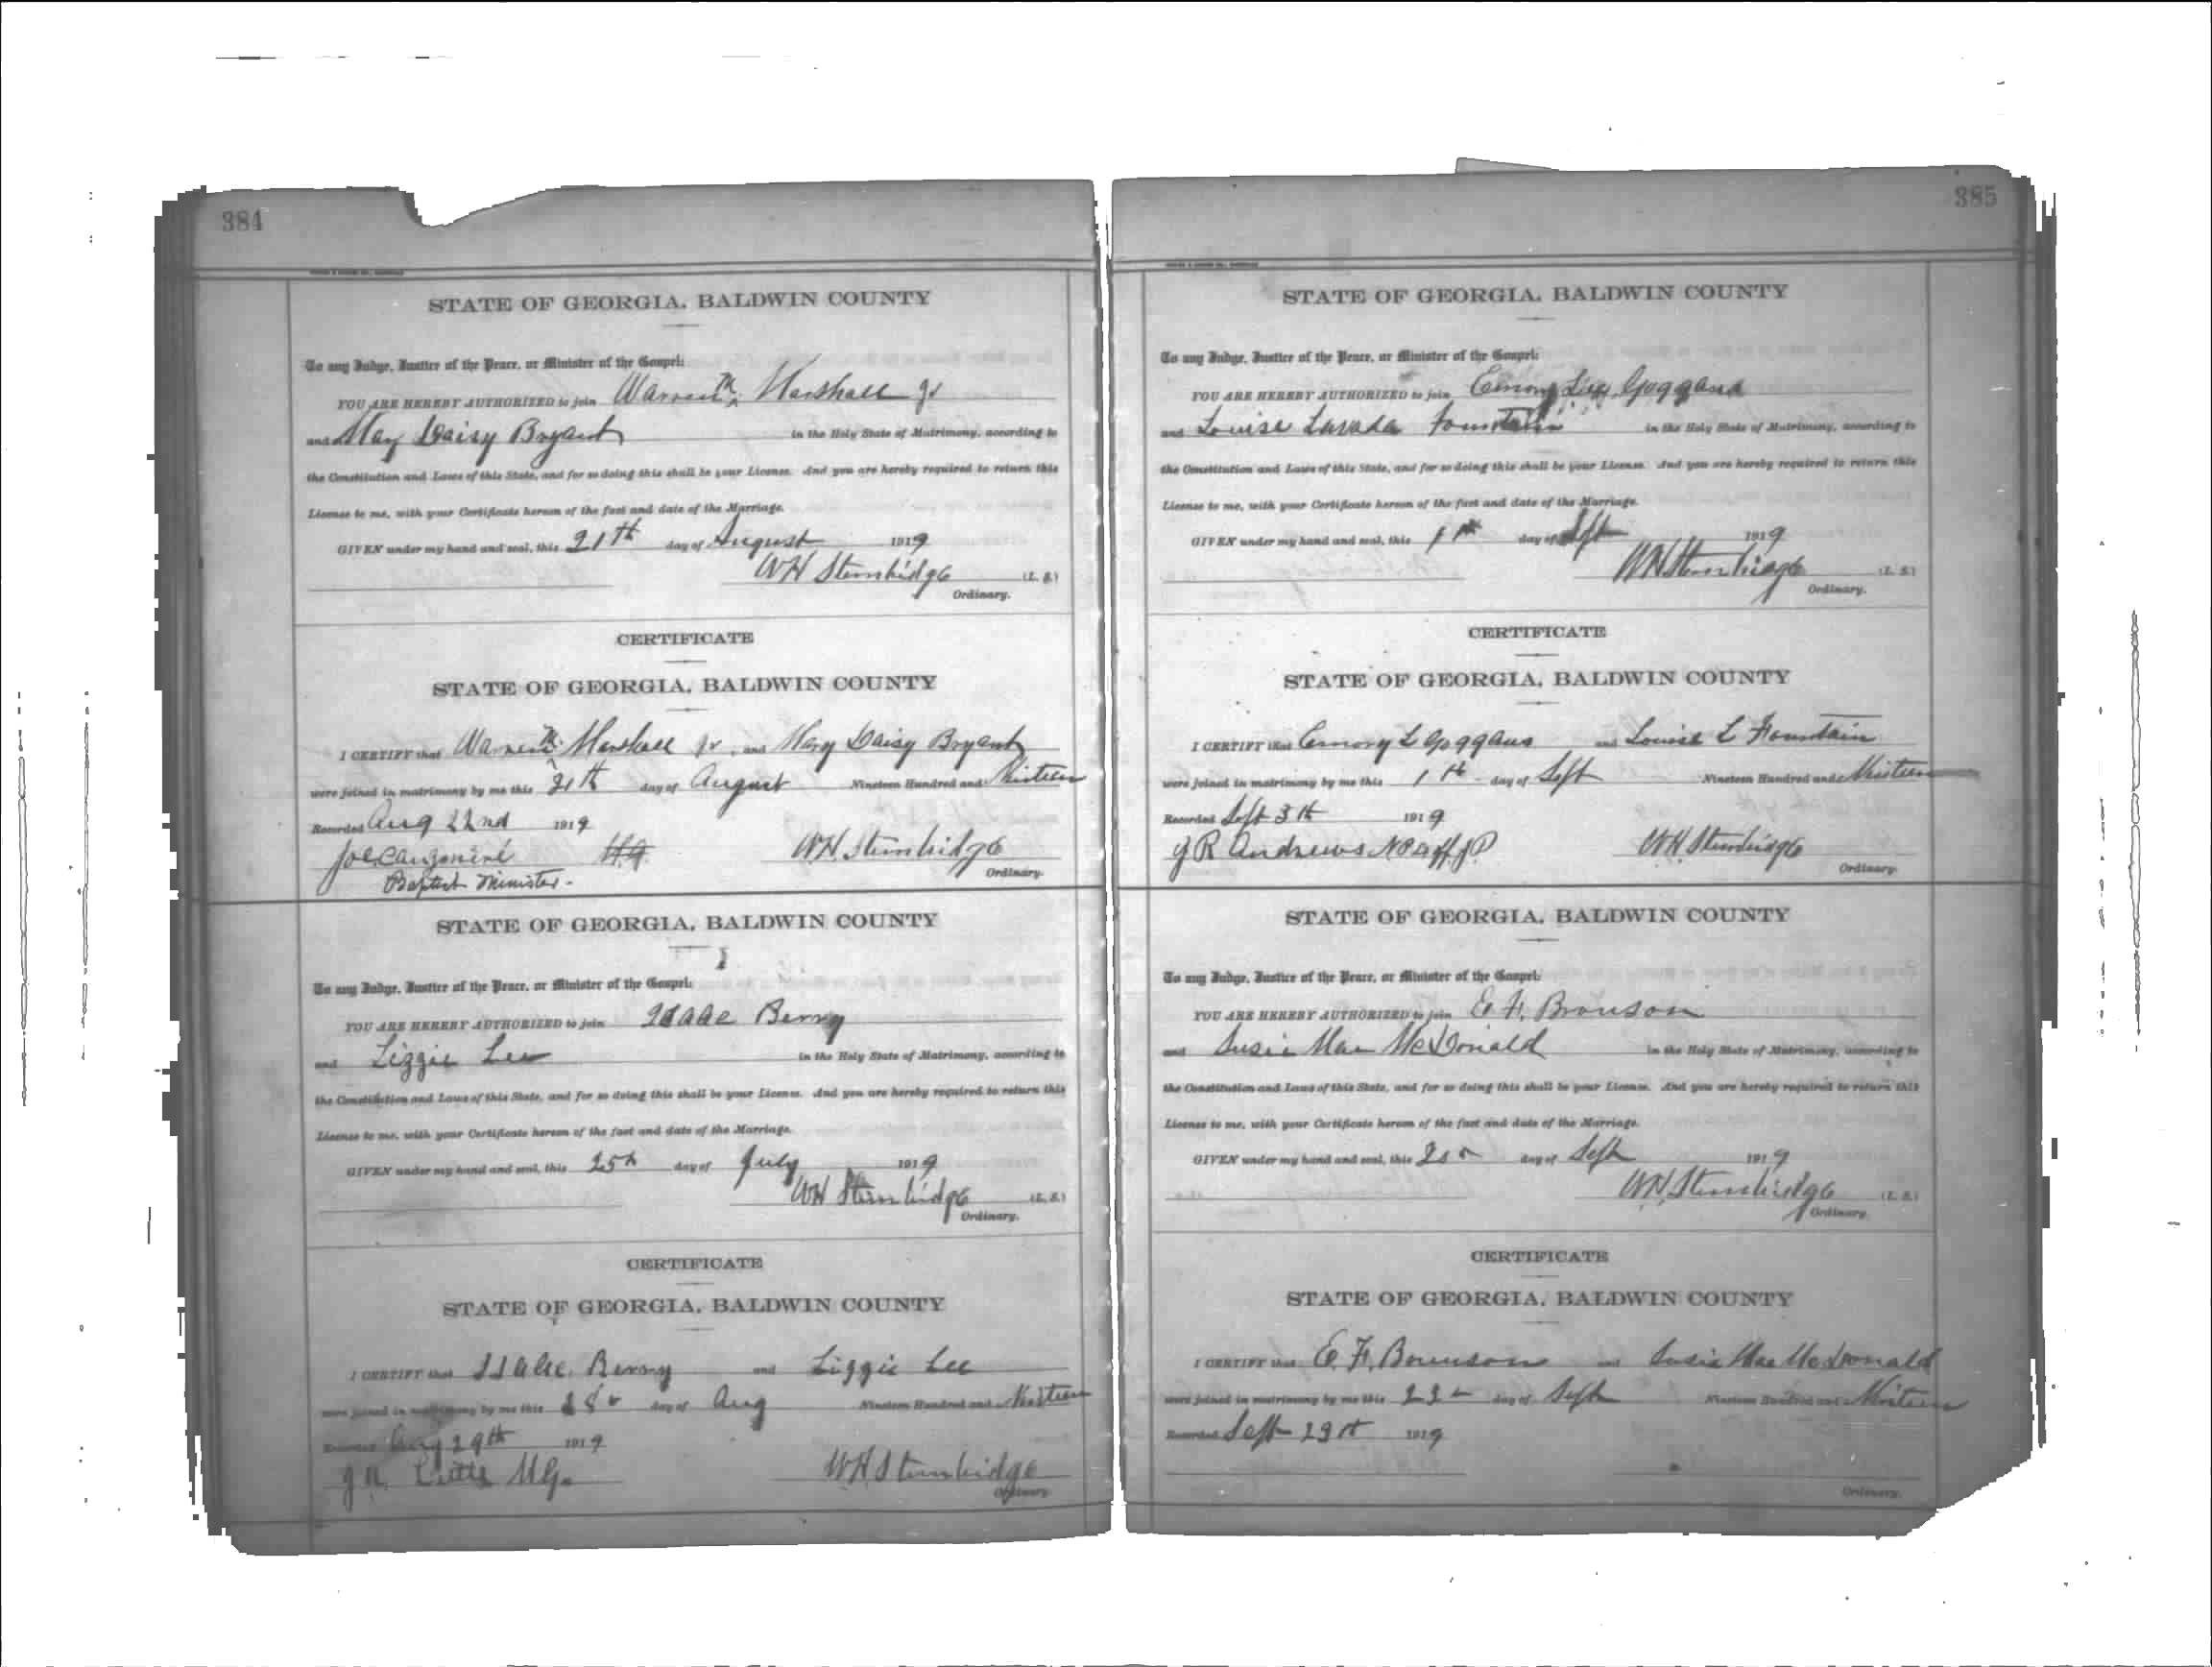 384
STATE OF GEORGIA, BALDWIN COUNTY
To any Judge, Justice of the Peace, or Minister of the Gospel:
YOU ARE HEREBY AUTHORIZED to join Warren Marshall Jr
and May Daisy Bryant in the Holy State of Matrimony, according to
the Constitution and Laws of this State, and for so doing this shall be your License. And you are hereby required to return this
License to me, with your Certificate hereon of the fact and date of the Marriage.
GIVEN under my hand and seal, this 21th day of August 1919
WH Stembridge (L. S.)
Ordinary.
CERTIFICATE
STATE OF GEORGIA, BALDWIN COUNTY
I CERTIFY that Warren Marshall Jr. and Mary Daisy Bryant
were joined in matrimony by me this 21th day of August Nineteen Hundred and Ninteen
Recorded Aug 22nd 1919
WH Stembridge
Baptist Minister.
Ordinary.
STATE OF GEORGIA, BALDWIN COUNTY
To any Judge, Justice of the Peace, or Minister of the Gospel:
YOU ARE HEREBY AUTHORIZED to join Isaac Berry
and Lizzie Lee in the Holy State of Matrimony, according to
the Constitution and Laws of this State, and for so doing this shall be your License. And you are hereby required to return this
License to me, with your Certificate hereon of the fact and date of the Marriage.
GIVEN under my hand and seal, this 25th day of July 1919
WH Stembridge (L. S.)
Ordinary.
CERTIFICATE
STATE OF GEORGIA, BALDWIN COUNTY
I CERTIFY that Isaac Berry and Lizzie Lee
were joined in matrimony by me this day of Aug Nineteen Hundred and Ninteen
Recorded Aug 29th 1919
Little M.G. WH Stembridge
Ordinary.
385
STATE OF GEORGIA, BALDWIN COUNTY
To any Judge, Justice of the Peace, or Minister of the Gospel:
YOU ARE HEREBY AUTHORIZED to join Emory Lee Goggans
and Louise Lavada Fountain in the Holy State of Matrimony, according to
the Constitution and Laws of this State, and for so doing this shall be your License. And you are hereby required to return this
License to me, with your Certificate hereon of the fact and date of the Marriage.
GIVEN under my hand and seal, this day of Sept 1919
WH Stembridge (L. S.)
Ordinary.
CERTIFICATE
STATE OF GEORGIA, BALDWIN COUNTY
I CERTIFY that Emory L Goggans and Louise L Fountain
were joined in matrimony by me this 1th day of Sept Nineteen Hundred and Ninteen
Recorded Sept 3th 1919
J R Andrews WH Stembridge
Ordinary.
STATE OF GEORGIA, BALDWIN COUNTY
To any Judge, Justice of the Peace, or Minister of the Gospel:
YOU ARE HEREBY AUTHORIZED to join E. F. Bronson
and Susie Mae McDonald in the Holy State of Matrimony, according to
the Constitution and Laws of this State, and for so doing this shall be your License. And you are hereby required to return this
License to me, with your Certificate hereon of the fact and date of the Marriage.
GIVEN under my hand and seal, this day of Sept 1919
WH Stembridge (L. S.)
Ordinary.
CERTIFICATE
STATE OF GEORGIA, BALDWIN COUNTY
I CERTIFY that E. F. Brownson and Susie Mae McDonald
were joined in matrimony by me this day of Sept Nineteen Hundred and Ninteen
Recorded Sept 1919
Ordinary.